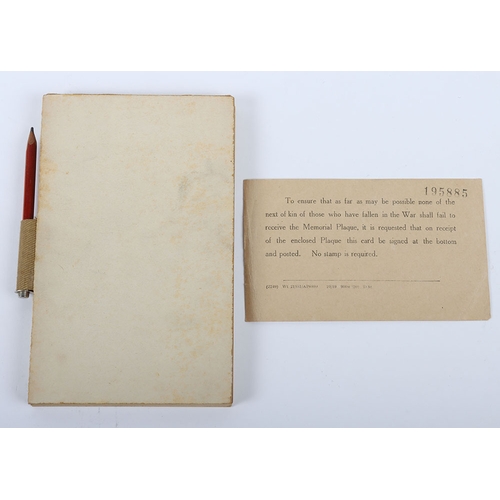 195885
To ensure that as far as may be possible none of the
next of kin of those who have fallen in the War shall fail to
receive the Memorial Plaque, it is requested that on receipt
of the enclosed Plaque this card be signed at the bottom
and posted. No stamp is required.